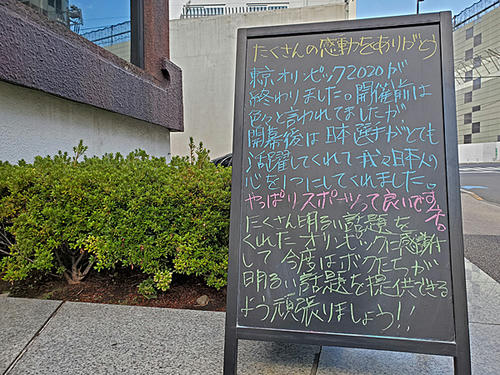 たくさんの感動をありがとう
東京オリンピック2020が
終わりました。開催前は
色々と言われてましたが
開幕後は日本選手がとても
活躍してくれて我々日本人の
心を1つにしてくれました。
やっぱりスポーツって良いですネ。
たくさん明るい話題を
くれたオリンピックに感謝
して今度はボクたちが
明るい話題を提供できる
よう頑張りましょう!!